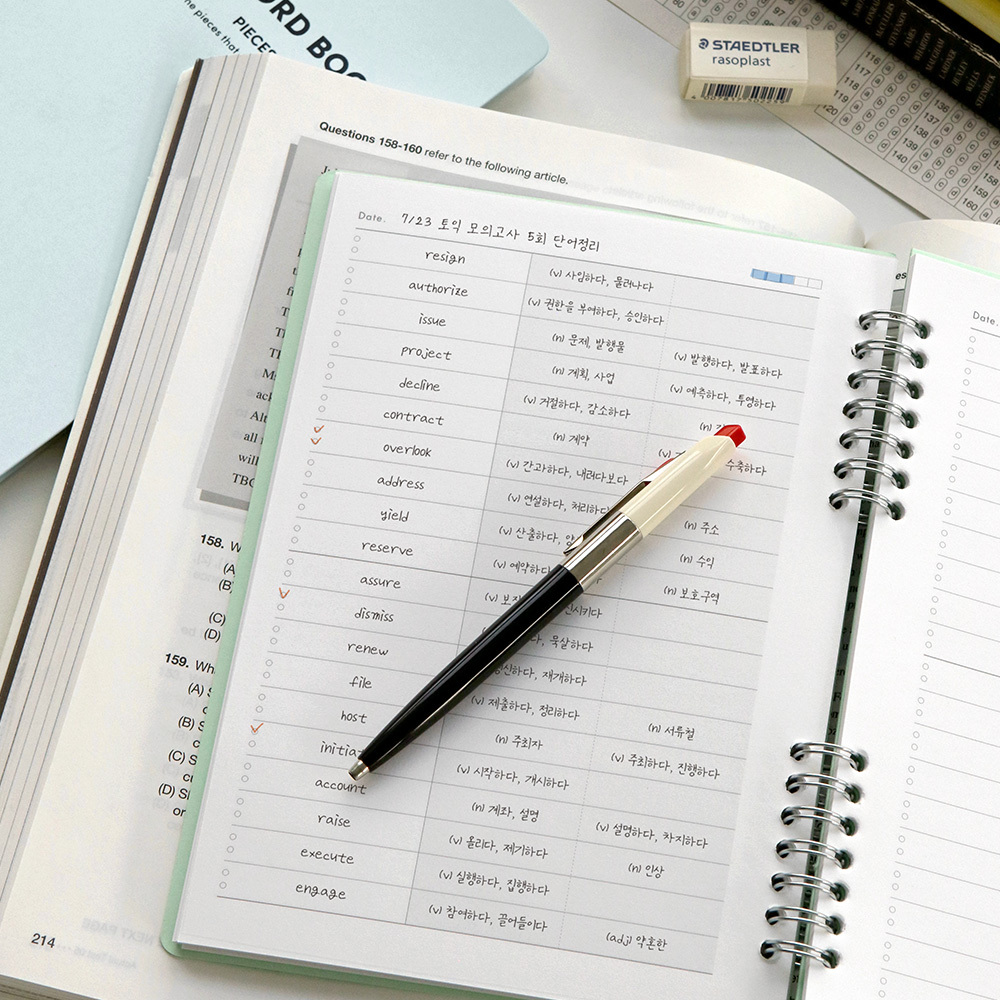 ORD BOOK
PIECE
he pieces that
STAEDTLER
rasoplast
116
117
118
119
120
136
137
138
139
140
158
159
160
Questions 158-160 refer to the following article.
Date. 7/23 토익 모의고사 5회 단어정리
resign (v) 사임하다, 물러나다
authorize (v) 권한을 부여하다, 승인하다
issue (n) 문제, 발행물 (v) 발행하다, 발표하다
project (n) 계획, 사업 (v) 예측하다, 투영하다
decline (v) 거절하다, 감소하다 (n)
contract (n) 계약 (v) 수축하다
overlook (v) 간과하다, 내려다보다
address (v) 연설하다, 처리하다 (n) 주소
yield (v) 산출하다, (n) 수익
reserve (v) 예약하다 (n) 보호구역
assure (v)
dismiss 묵살하다
renew 갱신하다, 재개하다
file (v) 제출하다, 정리하다 (n) 서류철
host (n) 주최자 (v) 주최하다, 진행하다
initiat (v) 시작하다, 개시하다
account (n) 계좌, 설명 (v) 설명하다, 차지하다
raise (v) 올리다, 제기하다 (n) 인상
execute (v) 실행하다, 집행하다
engage (v) 참여하다, 끌어들이다 (adj) 약혼한
Date.
all
will
TBC
158. W
(A)
(B)
(C)
(D)
159. Wh
(A) S
(B) S
(C) S
(D) S
or
214